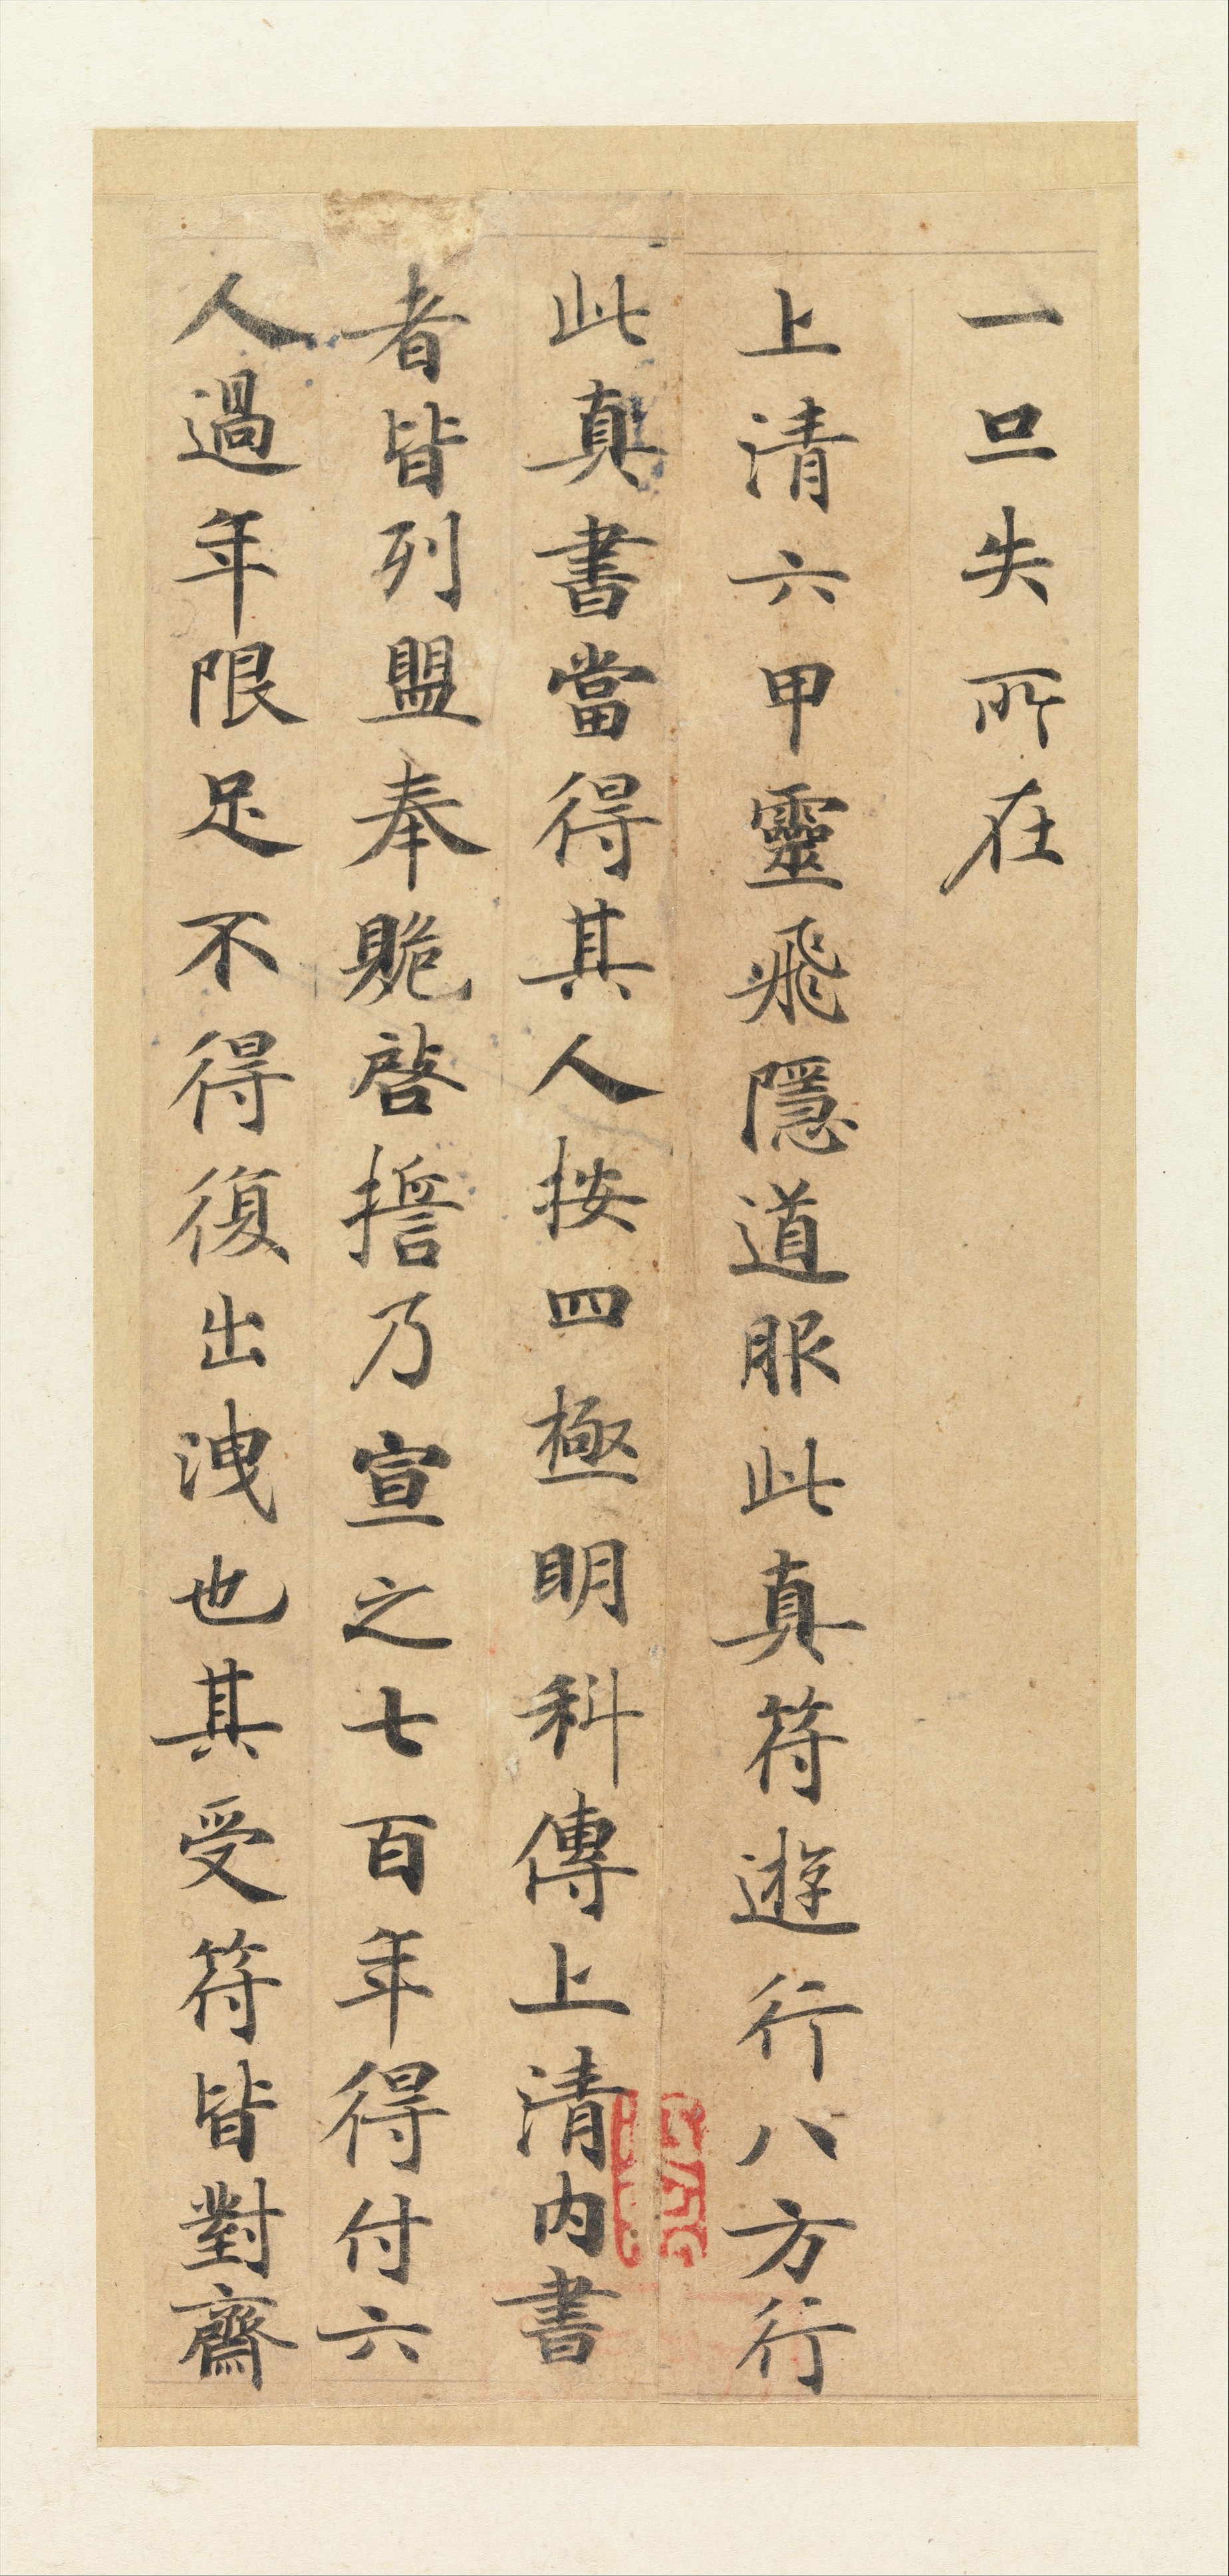 一旦失所在
上清六甲靈飛隱道服此真符遊行八方行
此真書當得其人按四極明科傳上清內書
者皆列盟奉贉啓擔乃宣之七百年得付六
人過年限足不得復出洩也其受符皆對齋